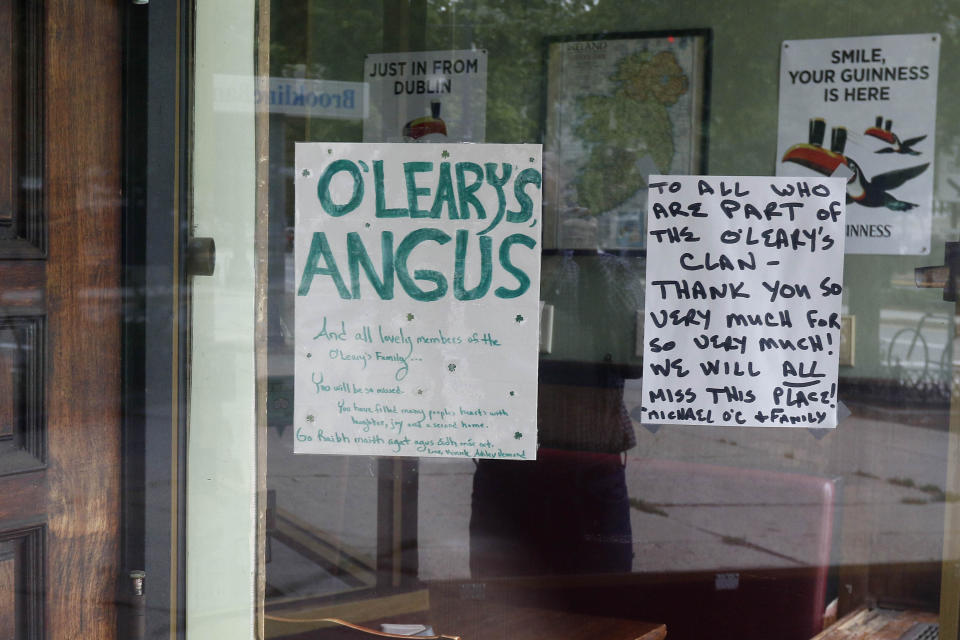 JUST IN FROM
DUBLIN
IRELAND
SMILE,
YOUR GUINNESS
IS HERE
NNESS
Brookline
O'LEARY'S,
ANGUS
And all lovely members of the
O'Leary's Family...
You will be so missed.
You have filled many peoples hearts with
laughter, joy and a second home.
Go Raibh maith agat agus
Love,
TO ALL WHO
ARE PART OF
THE O'LEARY'S
CLAN -
THANK YOU SO
VERY MUCH FOR
SO VERY MUCH!
WE WILL ALL
MISS THIS PLACE!
MICHAEL O'C + FAMILY